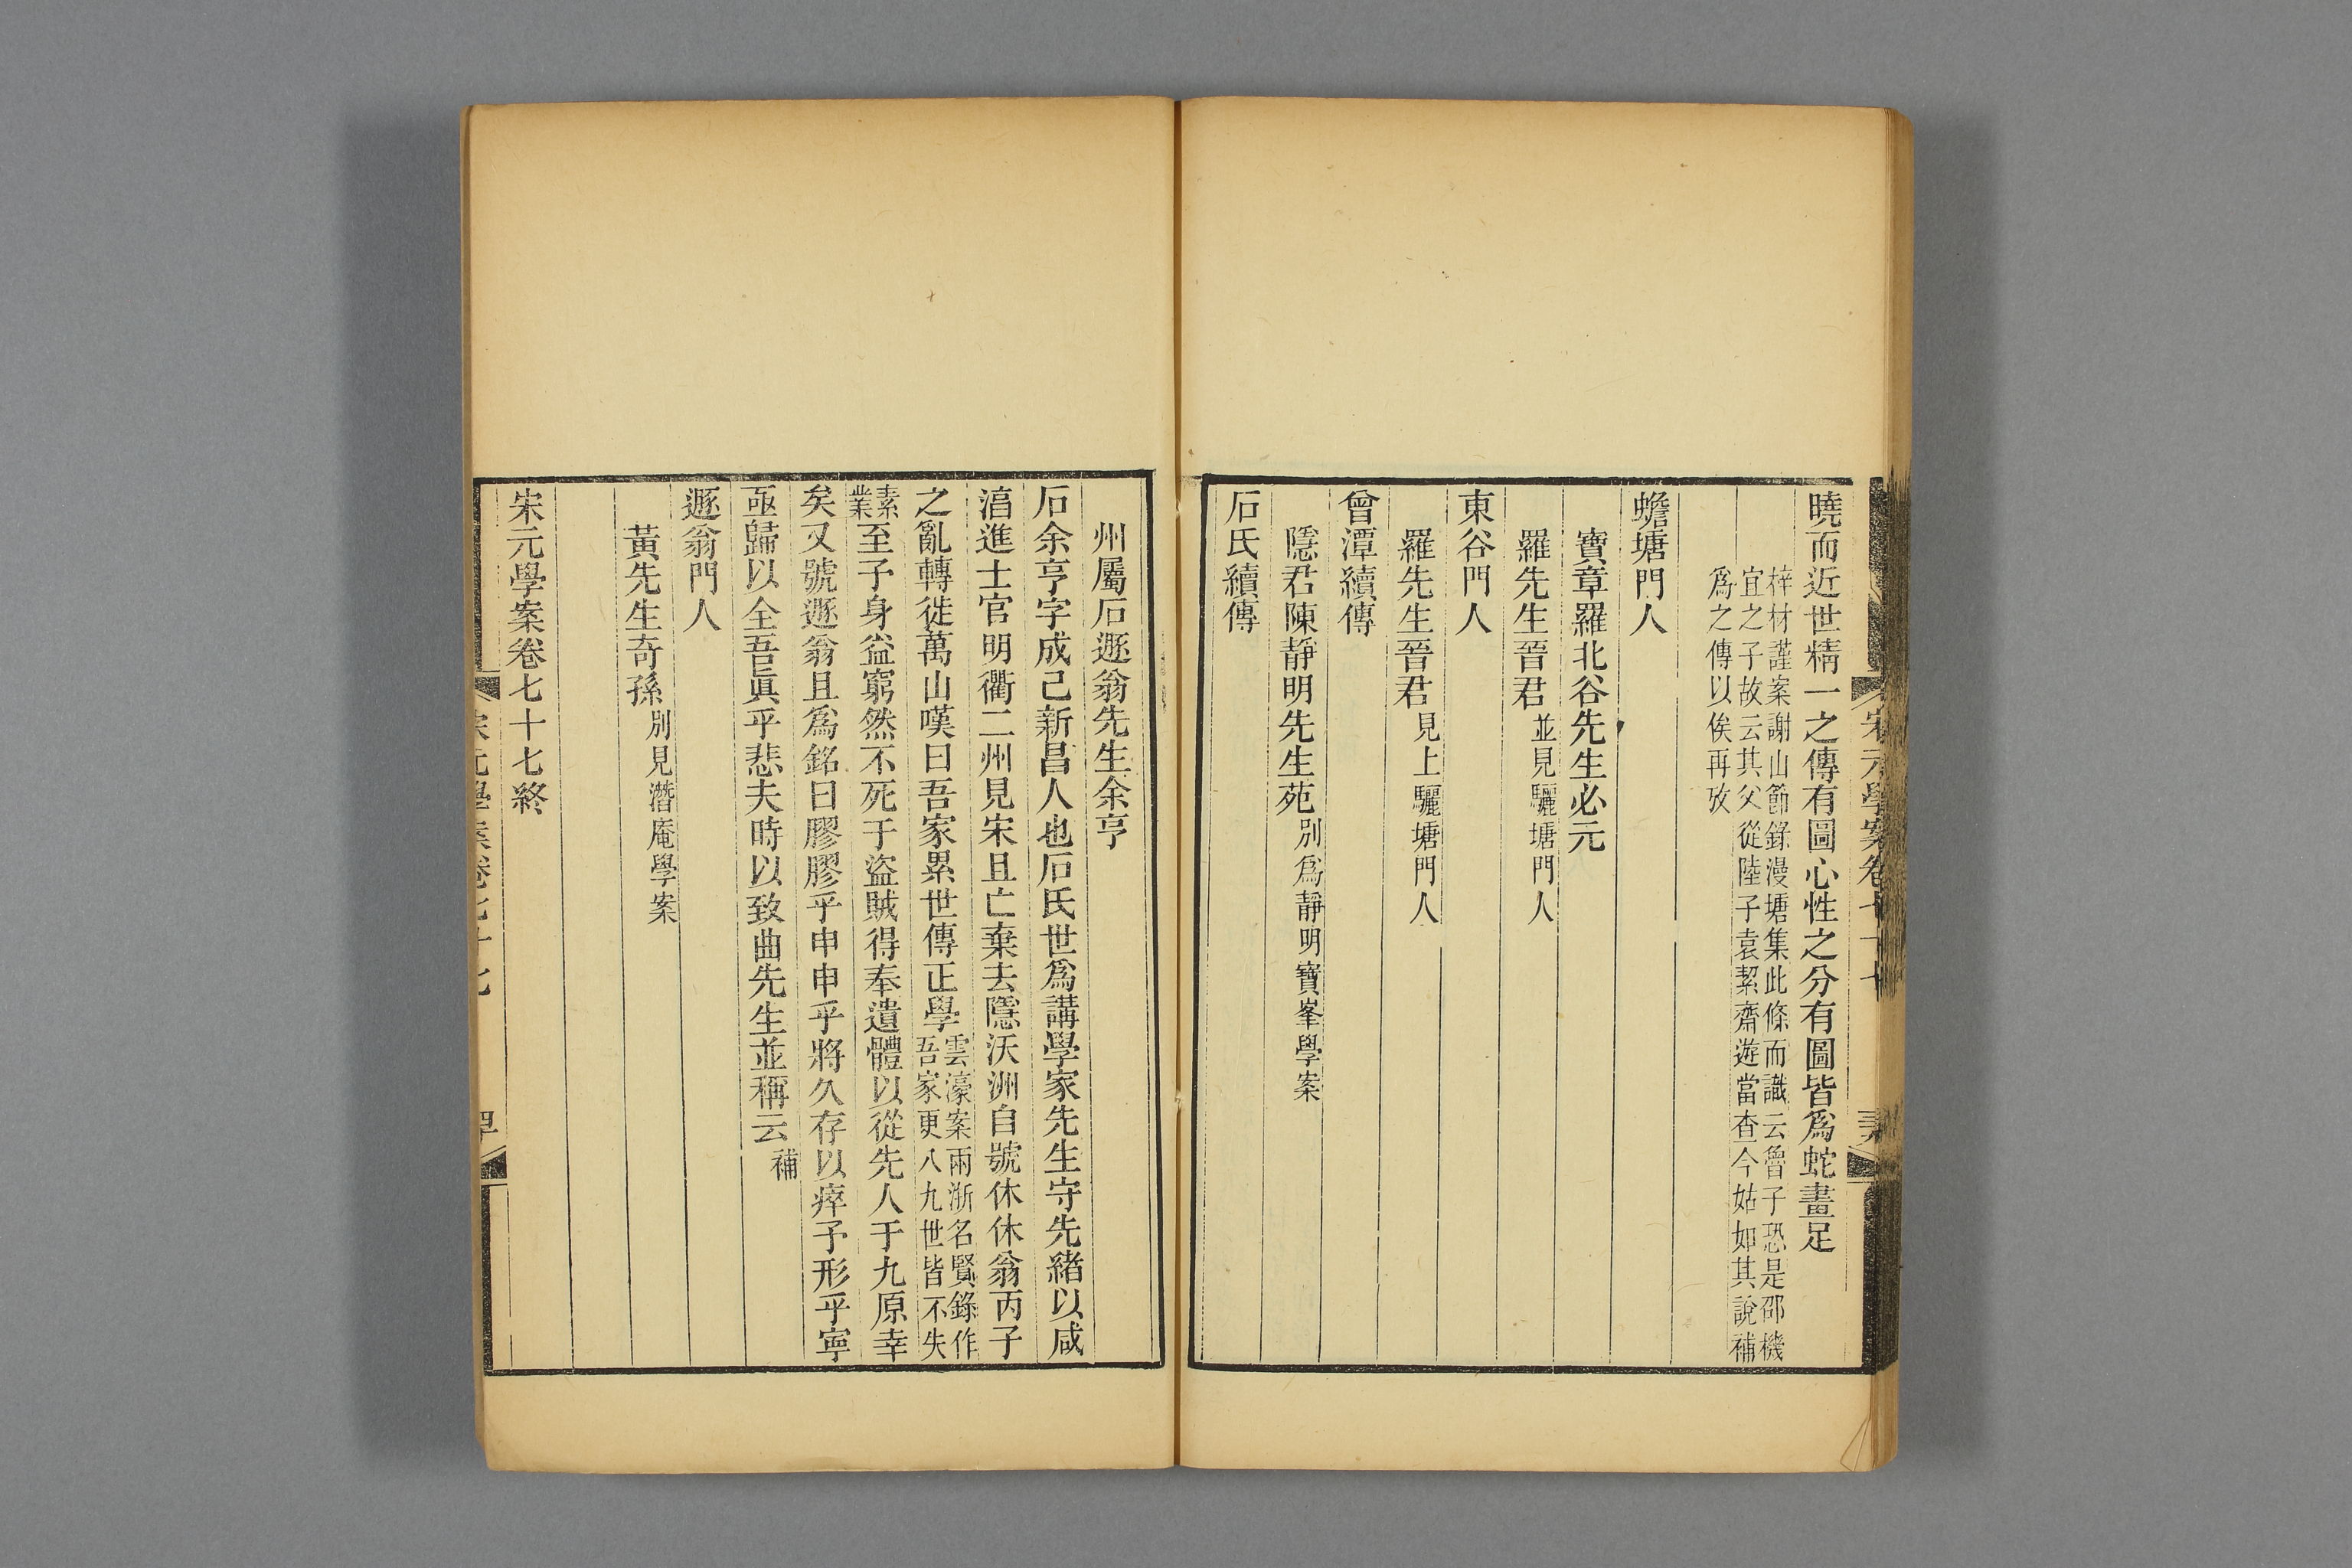 曉而近世精一之傳有圖心性之分有圖皆爲蛇畫足
梓材謹案謝山節錄漫塘集此條而識云魯子恐是邵機
宜之子故云其父從陸子袁絜齋遊當查今姑如其說補
爲之傳以俟再攷
蟾塘門人
寶章羅北谷先生必元
羅先生晉君並見驪塘門人
東谷門人
羅先生晉君見上驪塘門人
曾潭續傳
隱君陳靜明先生苑別爲靜明寶峯學案
石氏續傳
州屬石遯翁先生余亨
石余亨字成己新昌人也石氏世爲講學家先生守先緒以咸
淳進士官明衢二州見宋且亡棄去隱沃洲自號休休翁丙子
之亂轉徙萬山嘆曰吾家累世傳正學雲濠案兩浙名賢錄作
吾家更八九世皆不失
素業至予身益窮然不死于盜賊得奉遺體以從先人于九原幸
矣又號遯翁且爲銘曰膠膠乎申申乎將久存以瘁予形乎寧
亟歸以全吾眞乎悲夫時以致曲先生並稱云補
遯翁門人
黃先生奇孫別見潛庵學案
宋元學案卷七十七終
宋元學案卷七十七